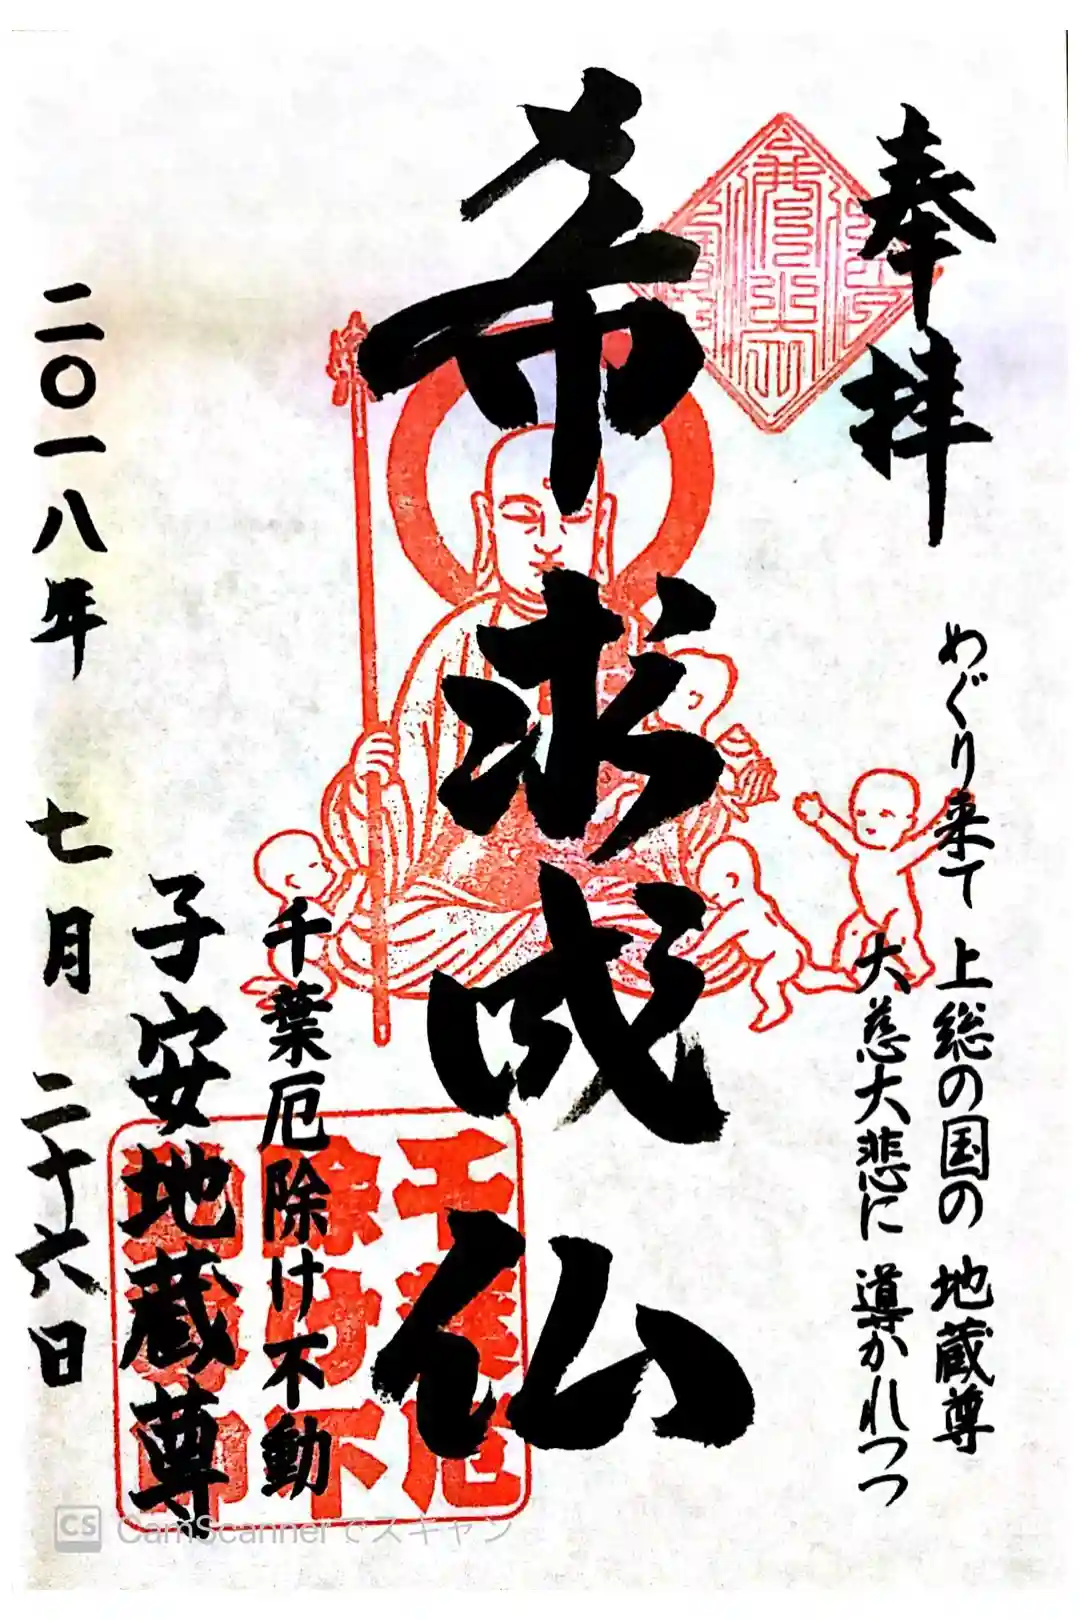 奉拝
めぐり来て 上総の国の 地蔵尊
大慈大悲に 導かれつつ
希求成仏
千葉厄除け不動
子安地蔵尊
二〇一八年 七月 二十六日
CS CamScannerでスキャン